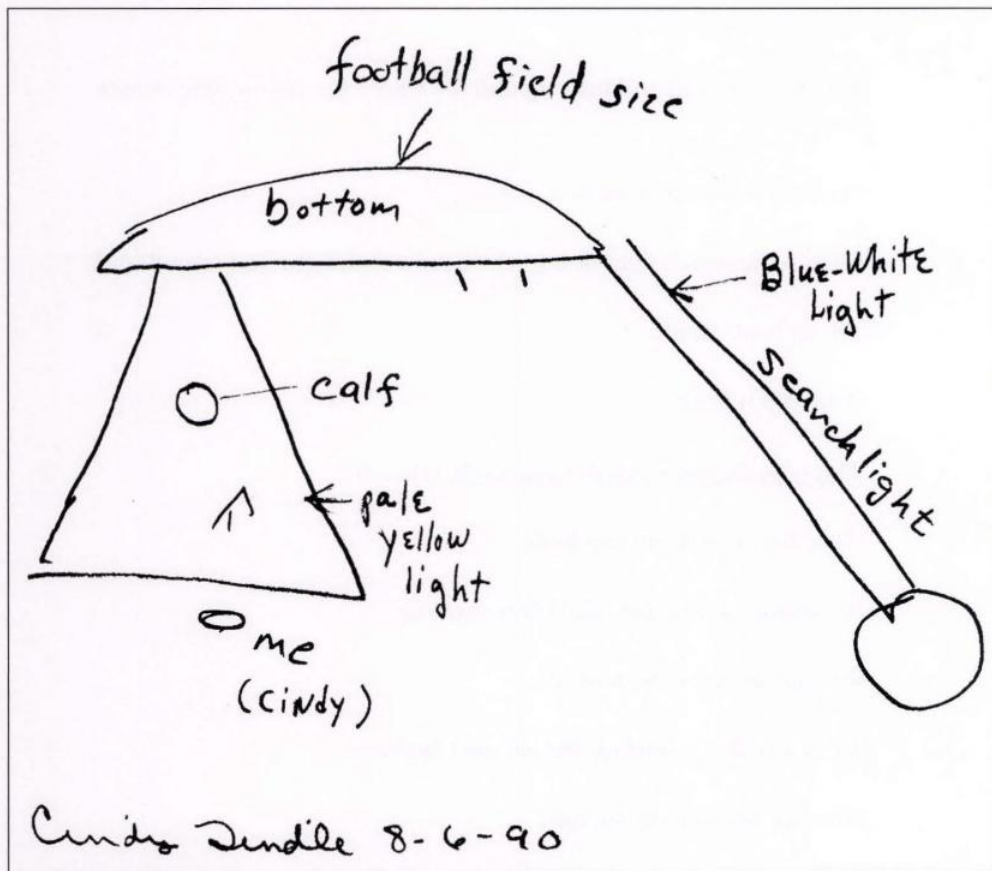 football field size
bottom
BluE-WhitE
Light
Searchlight
calf
palE
yEllow
light
me
(Cindy)
Cindy Tindle 8-6-90